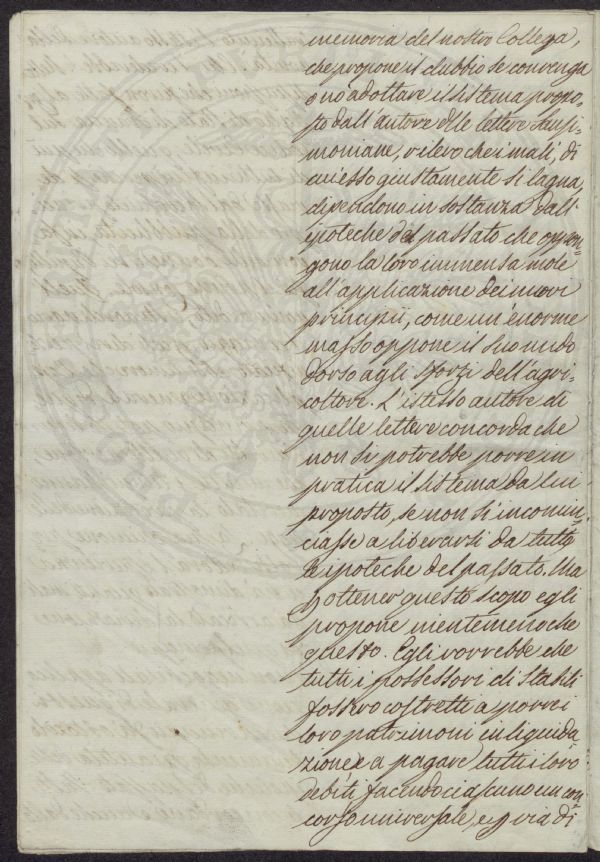 memoria del nostro Collega,
che propone il dubbio se convenga
o nò adottare il sistema propo-
sto dall'autore delle lettere Sansi-
moniane, rilevo che i mali, di
cui esso giustamente si lagna,
dipendono in sostanza dall'
ipoteche del passato che oppon-
gono la loro immensa mole
all'applicazione dei nuovi
principii, come un'enorme
masso oppone il suo nudo
dorso agli sforzi dell'agri-
coltore. L'istesso autore di
quelle lettere concorda che
non si potrebbe porre in
pratica il sistema da lui
proposto, se non si incomin-
ciasse a liberarsi da tutte
le ipoteche del passato. Ma
p ottener questo scopo egli
propone nientemeno che
questo. Egli vorrebbe che
tutti i possessori di Stabili
fossero costretti a porre i
loro patrimoni in liquida
zione e a pagare tutti i loro
debiti facendo ciascuno un con
corso universale, e p via di